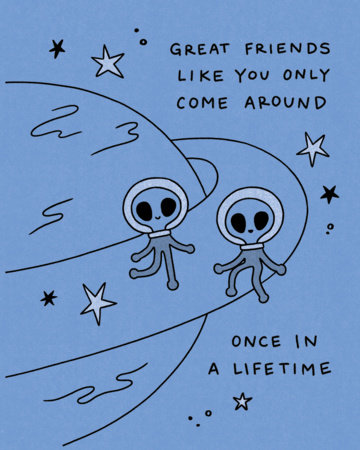 GREAT FRIENDS
LIKE YOU ONLY
COME AROUND
ONCE IN
A LIFETIME